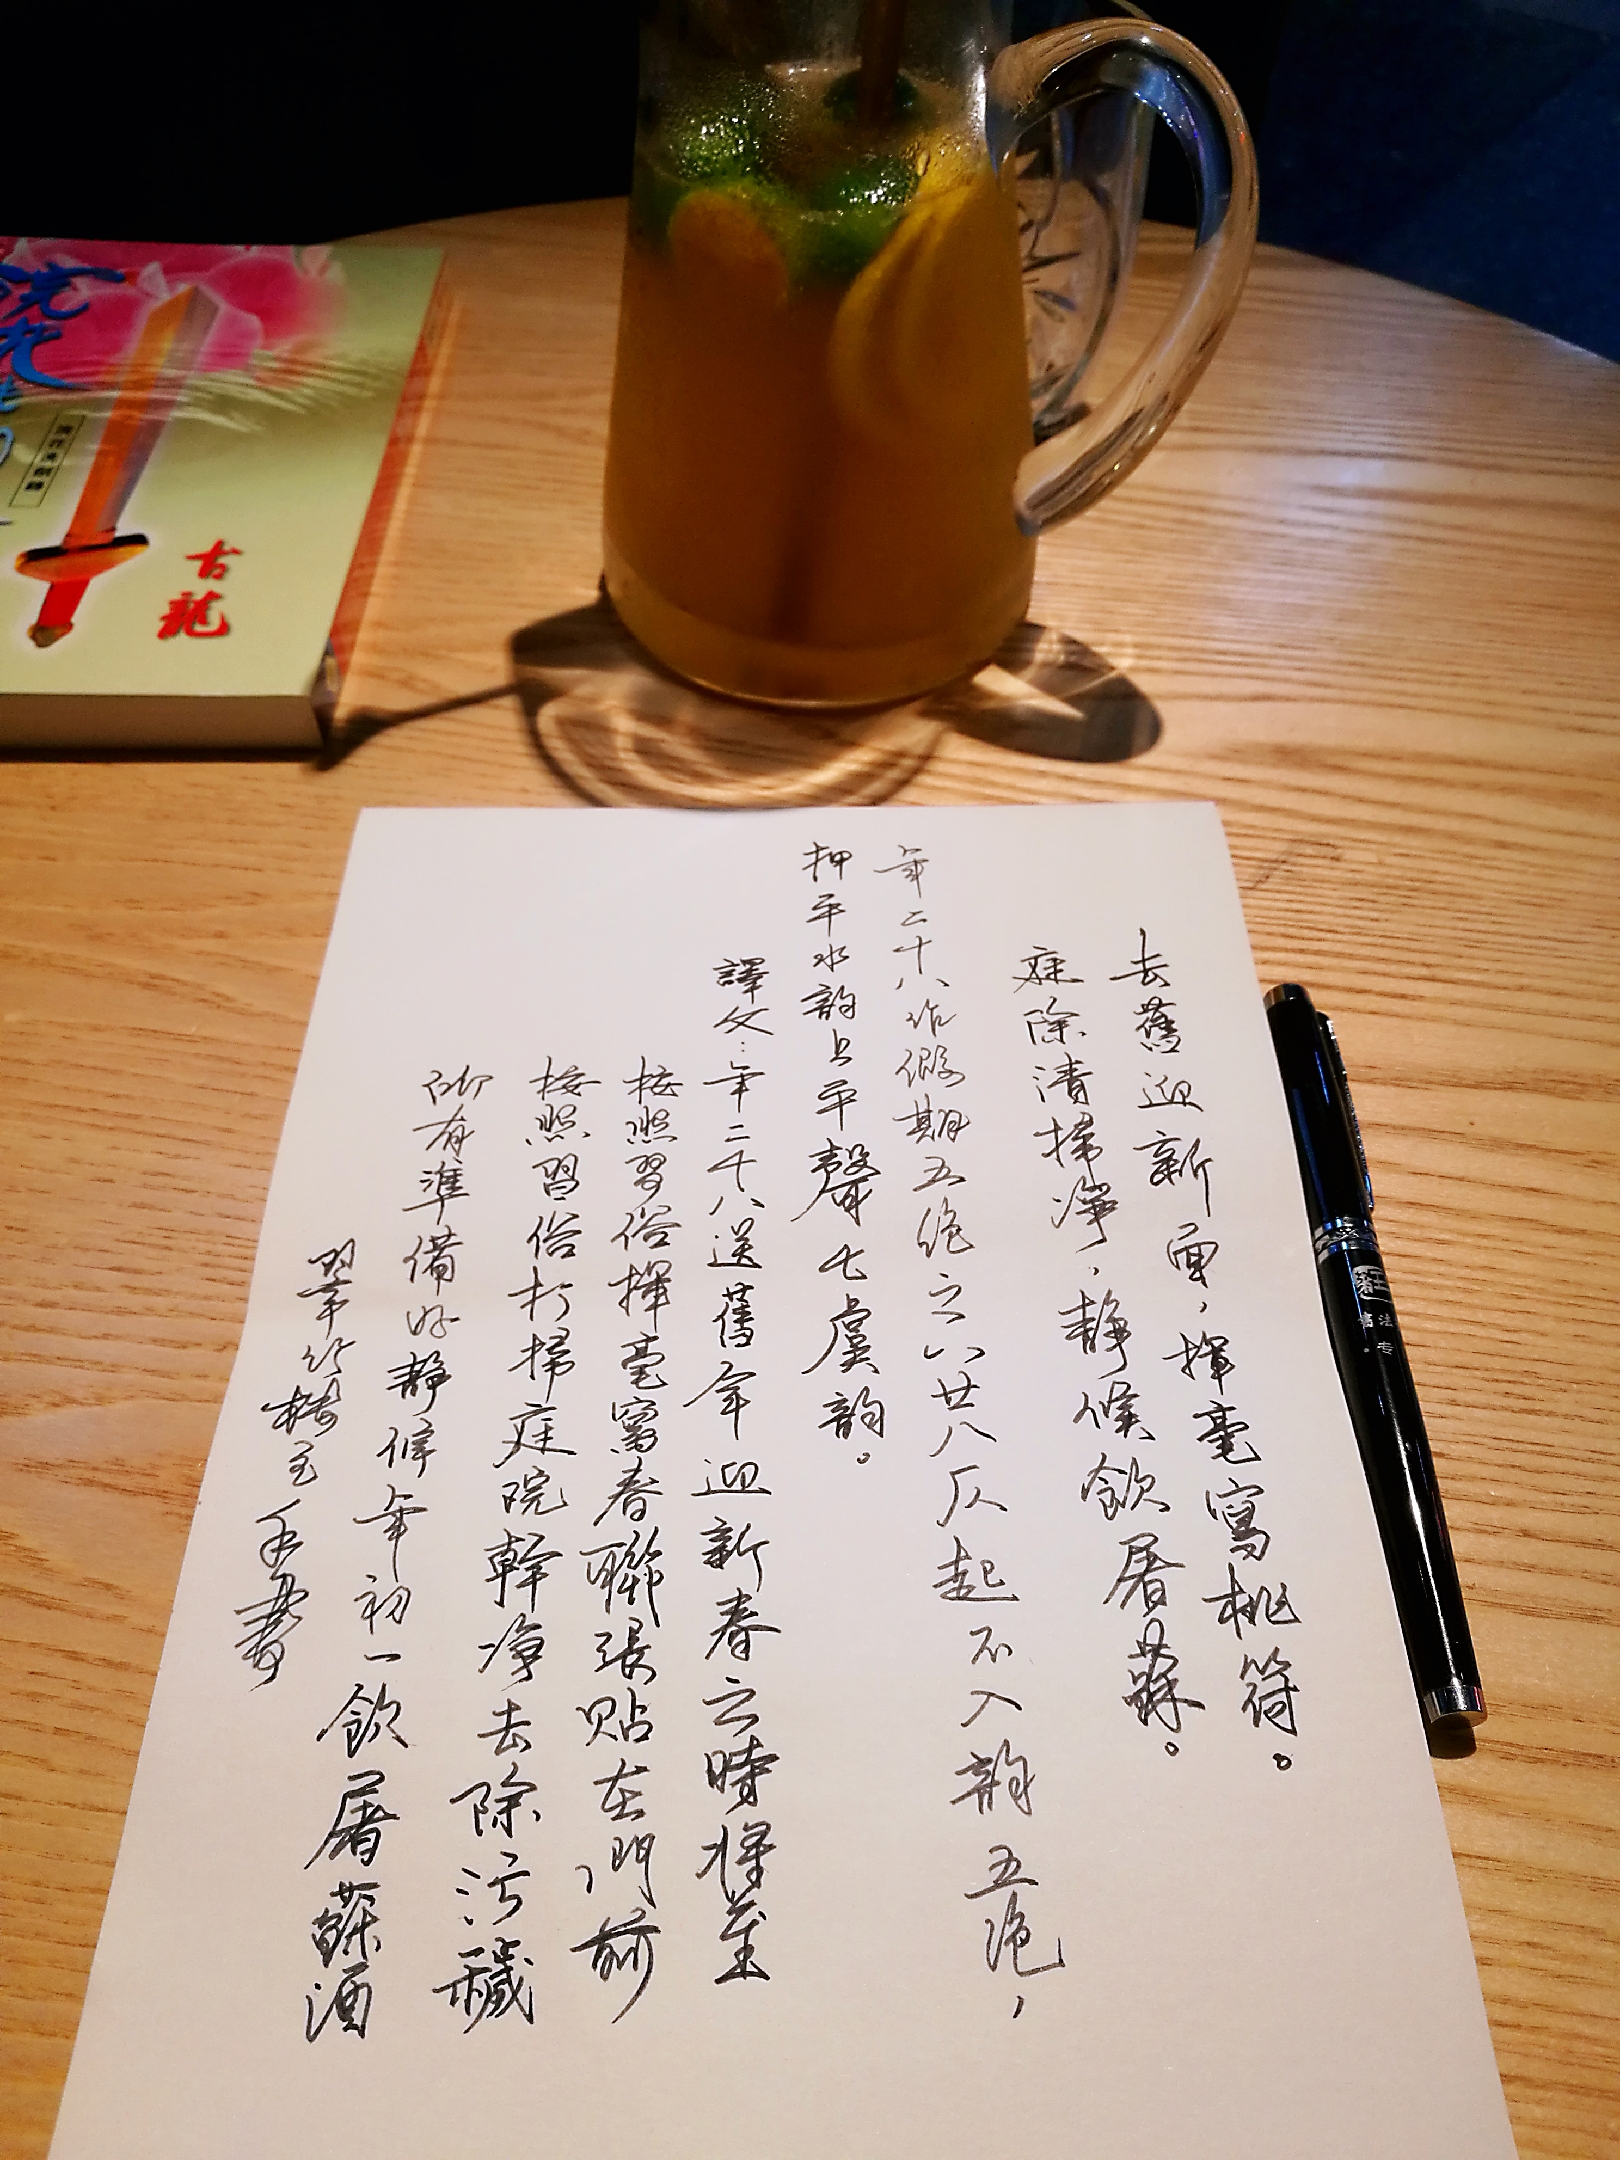 去舊迎新面，揮毫寫桃符。
庭除清掃淨，靜候飲屠蘇。
年二十八作假期五絕之六廿八仄起不入韵五絕，
押平水韵上平聲七虞韵。
譯文：年二十八送舊年迎新春之時將至
按照習俗揮毫寫春聯張貼在門前
按照習俗打掃庭院幹淨去除污穢
所有準備好靜候年初一飲屠蘇酒
翠竹樓主手書
古龍
書法
专